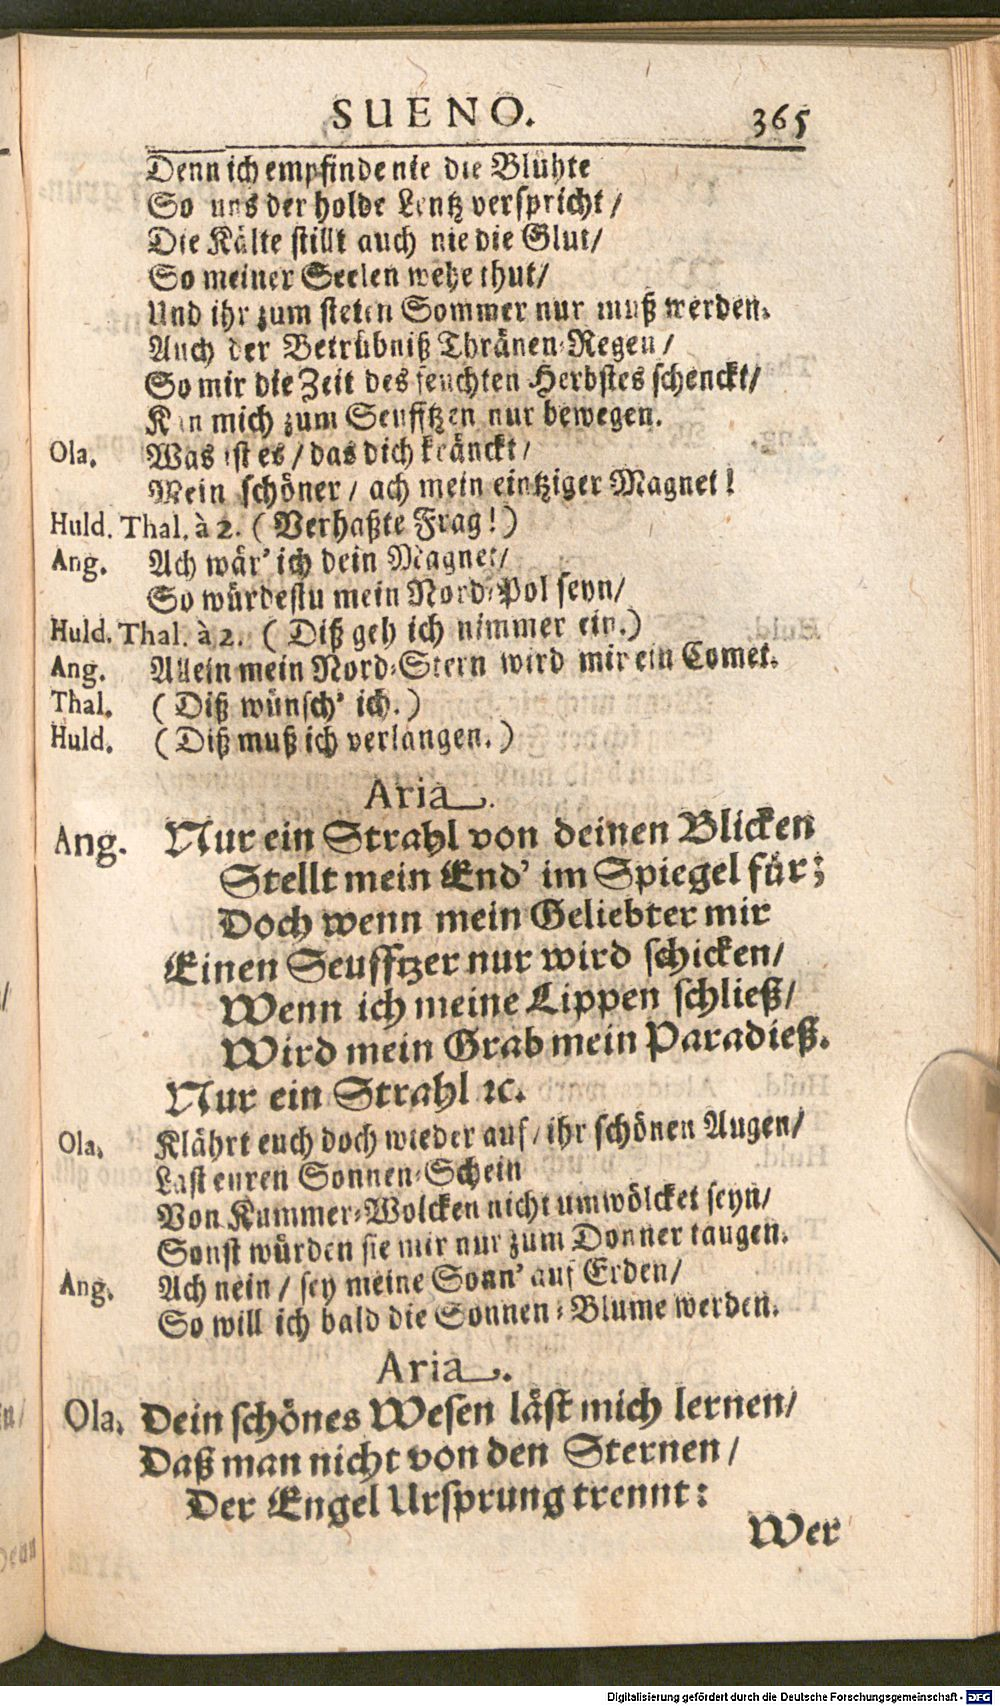 SUENO. 365
Denn ich empfinde nie die Blühte
So uns der holde Lentz verspricht /
Die Kälte stillt auch nie die Glut /
So meiner Seelen wehe thut /
Und ihr zum steten Sommer nur muß werden.
Auch der Betrübniß Thränen-Regen /
So mir die Zeit des feuchten Herbstes schenckt /
Kan mich zum Seufftzen nur bewegen.
Ola. Was ist es / das dich kränckt /
Mein schöner / ach mein eintziger Magnet!
Huld. Thal. à 2. ( Verhaßte Frag! )
Ang. Ach wär' ich dein Magnet /
So würdestu mein Nord-Pol seyn /
Huld. Thal. à 2. ( Diß geh ich nimmer ein. )
Ang. Allein mein Nord-Stern wird mir ein Comet.
Thal. ( Diß wünsch' ich. )
Huld. ( Diß muß ich verlangen. )
Aria.
Ang. Nur ein Strahl von deinen Blicken
Stellt mein End' im Spiegel für;
Doch wenn mein Geliebter mir
Einen Seufftzer nur wird schicken /
Wenn ich meine Lippen schließ /
Wird mein Grab mein Paradieß.
Nur ein Strahl ꝛc.
Ola. Klährt euch doch wieder auf / ihr schönen Augen /
Last euren Sonnen-Schein
Von Kummer-Wolcken nicht umwölcket seyn /
Sonst würden sie mir nur zum Donner taugen.
Ang. Ach nein / sey meine Sonn' auf Erden /
So will ich bald die Sonnen-Blume werden.
Aria.
Ola. Dein schönes Wesen läst mich lernen /
Daß man nicht von den Sternen /
Der Engel Ursprung trennt:
Wer
Digitalisierung gefördert durch die Deutsche Forschungsgemeinschaft - DFG